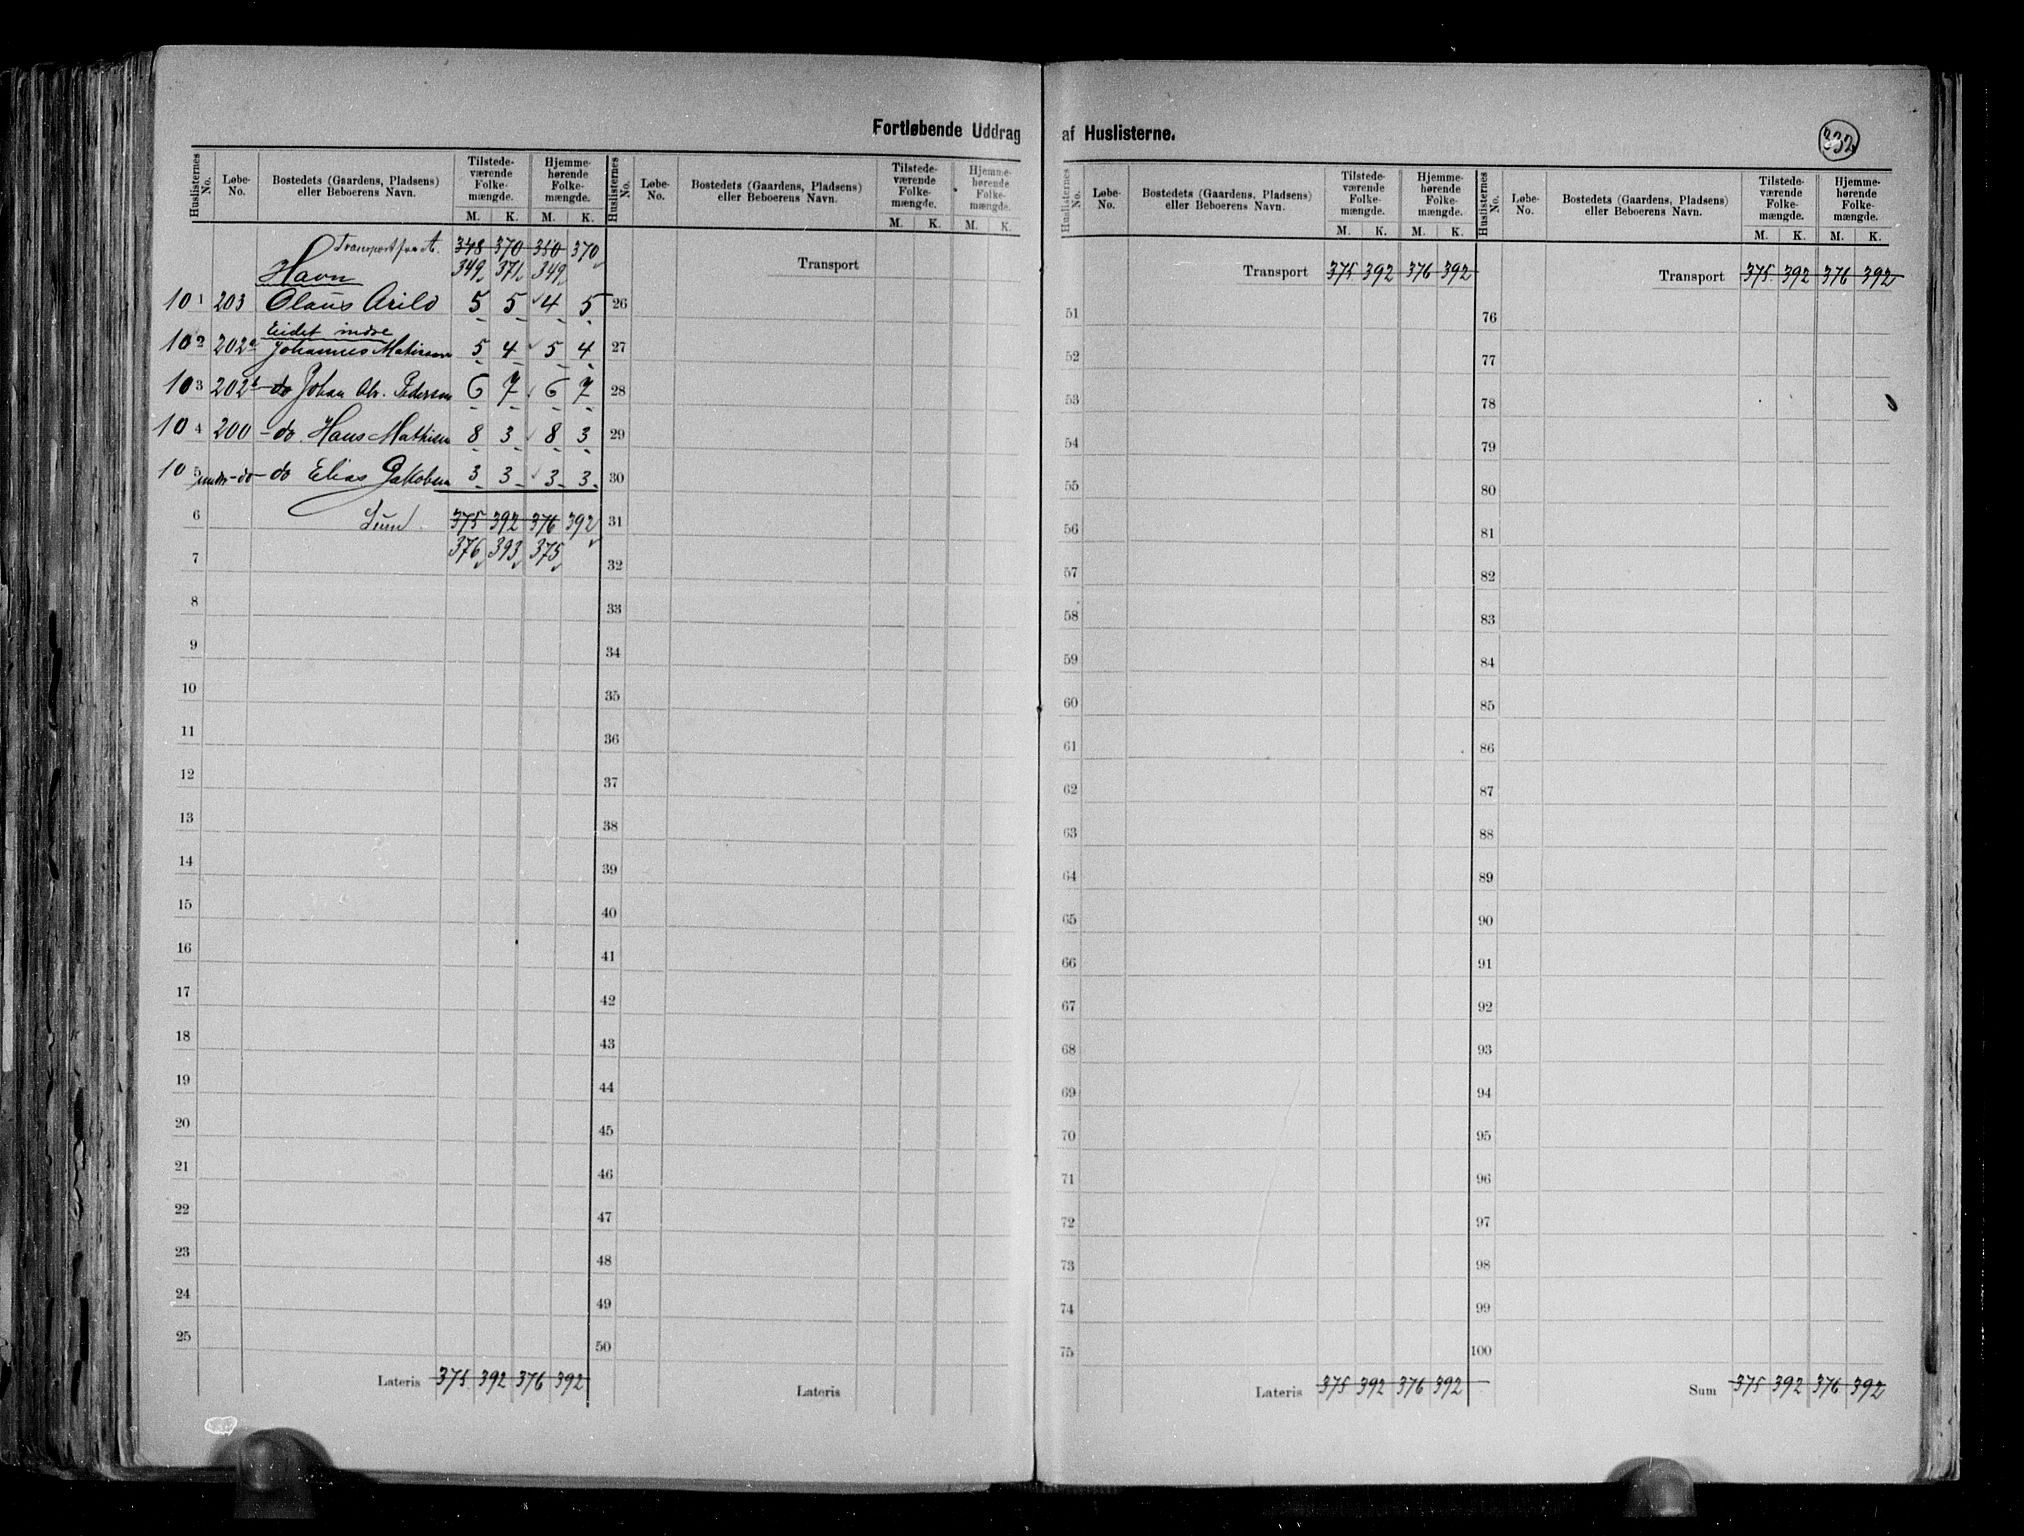 Fortløbende Uddrag af Huslisterne.
332
Huslisternes No. Løbe-No. Bostedets (Gaardens, Pladsens) eller Beboerens Navn. Tilstedeværende Folkemængde. Hjemmehørende Folkemængde. M. K. M. K.
Transport fra A. 348 370 350 370
Havn 349 371 349
101 203 Olaus Arild 5 5 4 5
Eidet indre
102 202a Johannes Mathisen 5 4 5 4
103 202b - do Johan Abr. Pedersen 6 7 6 7
104 200 - do. Hans Mathisen 8 3 8 3
105 - do - do Elias Jakobsen 3 3 3 3
6 Sum 375 392 376 392
376 393 375
7
8
9
10
11
12
13
14
15
16
17
18
19
20
21
22
23
24
25
Lateris 375 392 376 392
Huslisternes No. Løbe-No. Bostedets (Gaardens, Pladsens) eller Beboerens Navn. Tilstedeværende Folkemængde. Hjemmehørende Folkemængde. M. K. M. K.
Transport
26
27
28
29
30
31
32
33
34
35
36
37
38
39
40
41
42
43
44
45
46
47
48
49
50
Lateris
Huslisternes No. Løbe-No. Bostedets (Gaardens, Pladsens) eller Beboerens Navn. Tilstedeværende Folkemængde. Hjemmehørende Folkemængde. M. K. M. K.
Transport 375 392 376 392
51
52
53
54
55
56
57
58
59
60
61
62
63
64
65
66
67
68
69
70
71
72
73
74
75
Lateris 375 392 376 392
Huslisternes No. Løbe-No. Bostedets (Gaardens, Pladsens) eller Beboerens Navn. Tilstedeværende Folkemængde. Hjemmehørende Folkemængde. M. K. M. K.
Transport 375 392 376 392
76
77
78
79
80
81
82
83
84
85
86
87
88
89
90
91
92
93
94
95
96
97
98
99
100
Sum 375 392 376 392